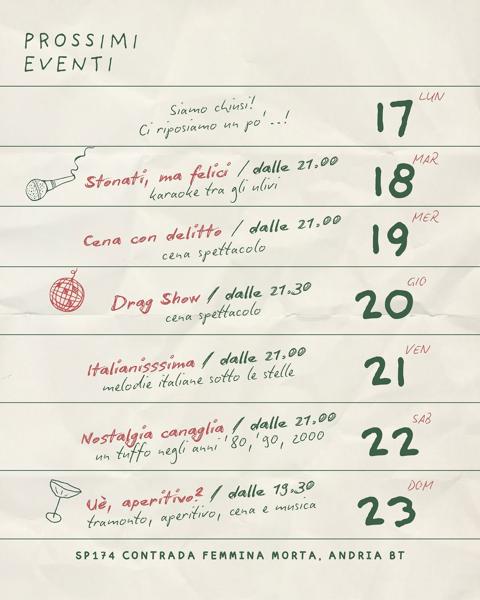 PROSSIMI
EVENTI
LUN
Siamo chiusi!
17
Ci riposiamo un po'...!
MAR
Stonati, ma felici / dalle 21.00
18
karaoke tra gli ulivi
MER
Cena con delitto / dalle 21.00
19
cena spettacolo
GIO
Drag Show / dalle 21.30
20
cena spettacolo
VEN
Italianisssima / dalle 21.00
21
melodie italiane sotto le stelle
SAB
Nostalgia canaglia / dalle 21.00
22
un tuffo negli anni '80, '90, 2000
DOM
Uè, aperitivo? / dalle 19.30
23
tramonto, aperitivo, cena e musica
SP174 CONTRADA FEMMINA MORTA, ANDRIA BT